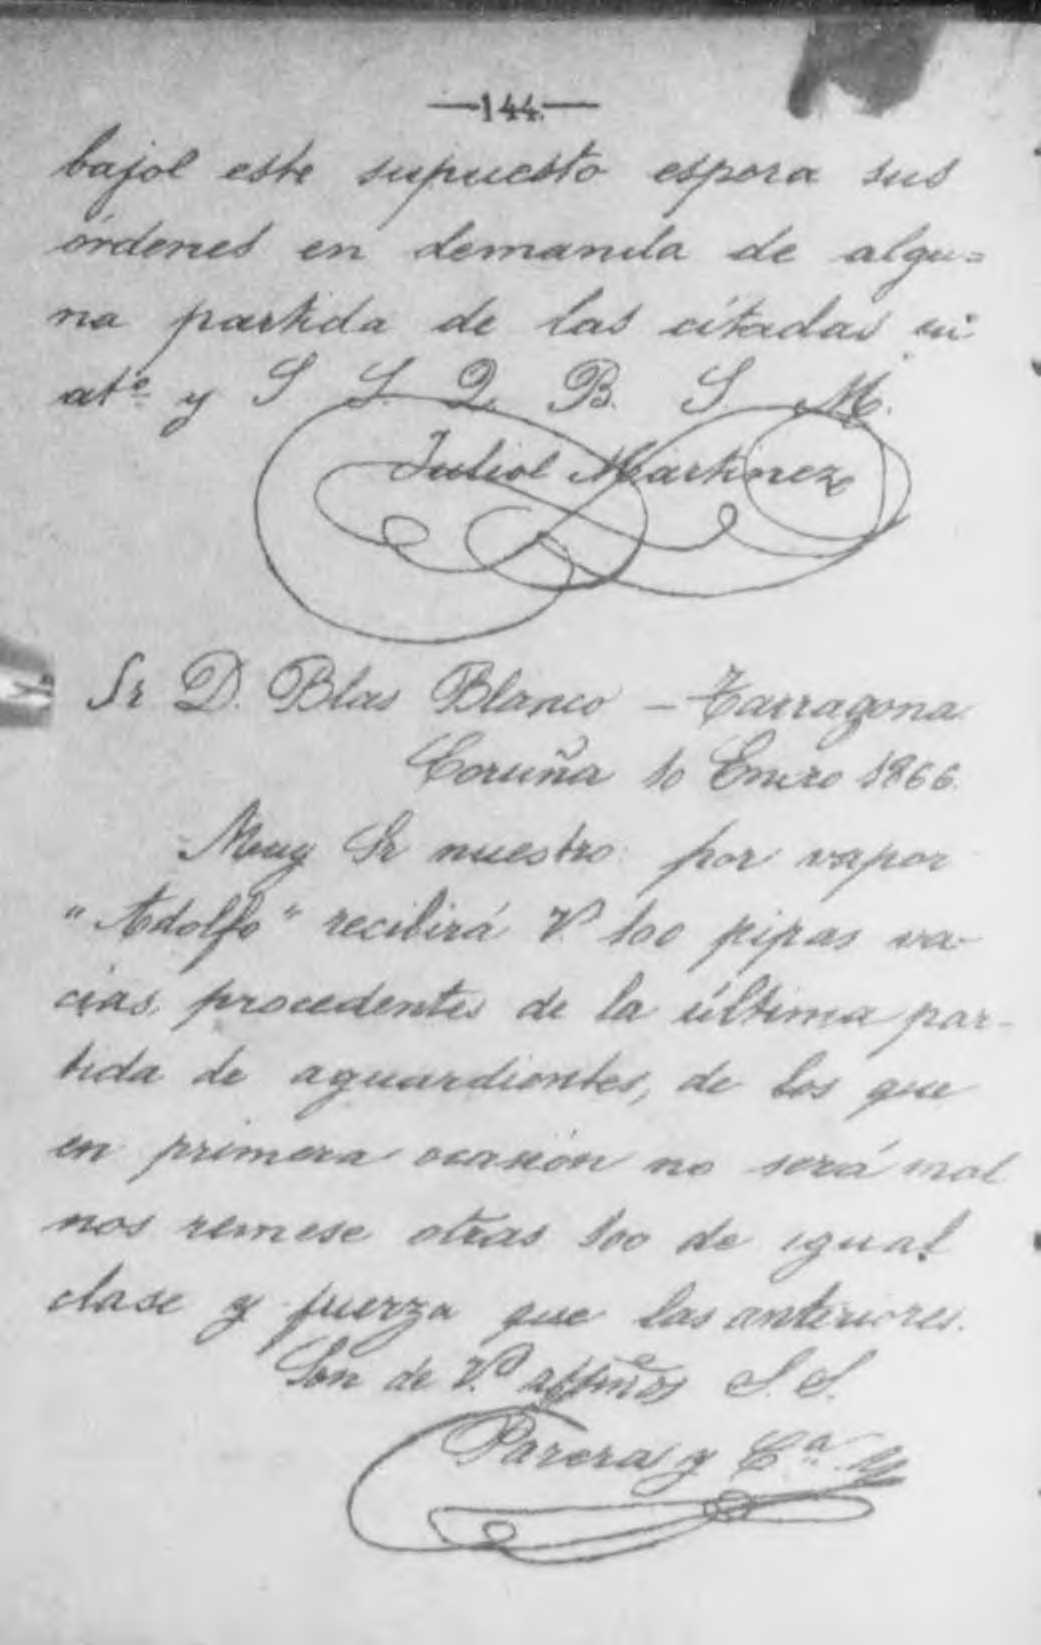 —144.—
bajol este supuesto espera sus
órdenes en demanda de algu=
na partida de las citadas su
atº y S S. Q. B. S. M.
Juliol Martinez
Sr D. Blas Blanco – Tarragona.
Coruña 10 Enero 1866.
Muy Sr nuestro: por vapor
"Adolfo" recibirá V. 100 pipas va-
cias, procedentes de la última par-
tida de aguardientes, de los que
en primera ocasión no será mal
nos remese otras 100 de igual
clase y fuerza que las anteriores.
Son de V.º affmºs S. S.
Parera y Cª